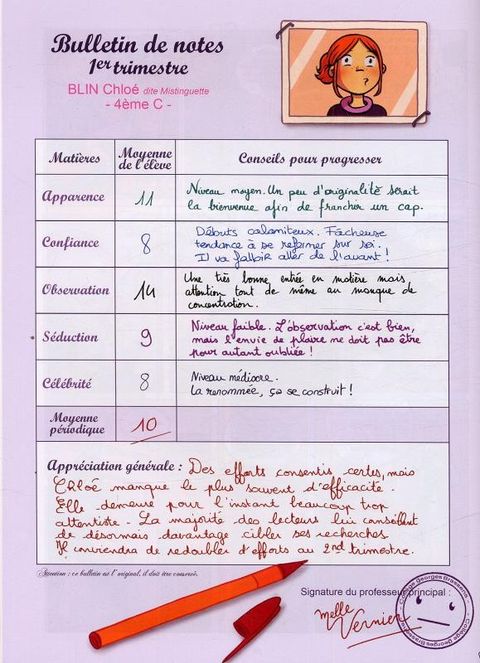 Bulletin de notes
1er trimestre
BLIN Chloé dite Mistinguette
- 4ème C -
Matières
Moyenne de l'élève
Conseils pour progresser
Apparence
11
Niveau moyen. Un peu d'originalité serait
la bienvenue afin de franchir un cap.
Confiance
8
Débuts calamiteux. Fâcheuse
tendance à se refermer sur soi.
Il va falloir aller de l'avant !
Observation
14
Une très bonne entrée en matière mais
attention tout de même au manque de
concentration.
Séduction
9
Niveau faible. L'observation c'est bien,
mais l'envie de plaire ne doit pas être
pour autant oubliée !
Célébrité
8
Niveau médiocre.
La renommée, ça se construit !
Moyenne périodique
10
Appréciation générale : Des efforts consentis certes, mais
Chloé manque le plus souvent d'efficacité.
Elle demeure pour l'instant beaucoup trop
attentiste. La majorité des lecteurs lui conseillent
de désormais davantage cibler ses recherches.
Il conviendra de redoubler d'efforts au 2nd trimestre.
Attention : ce bulletin est l'original, il doit être conservé.
Signature du professeur principal :
Melle
Vernier
Collège Georges Brassens
Collège Georges Brassens